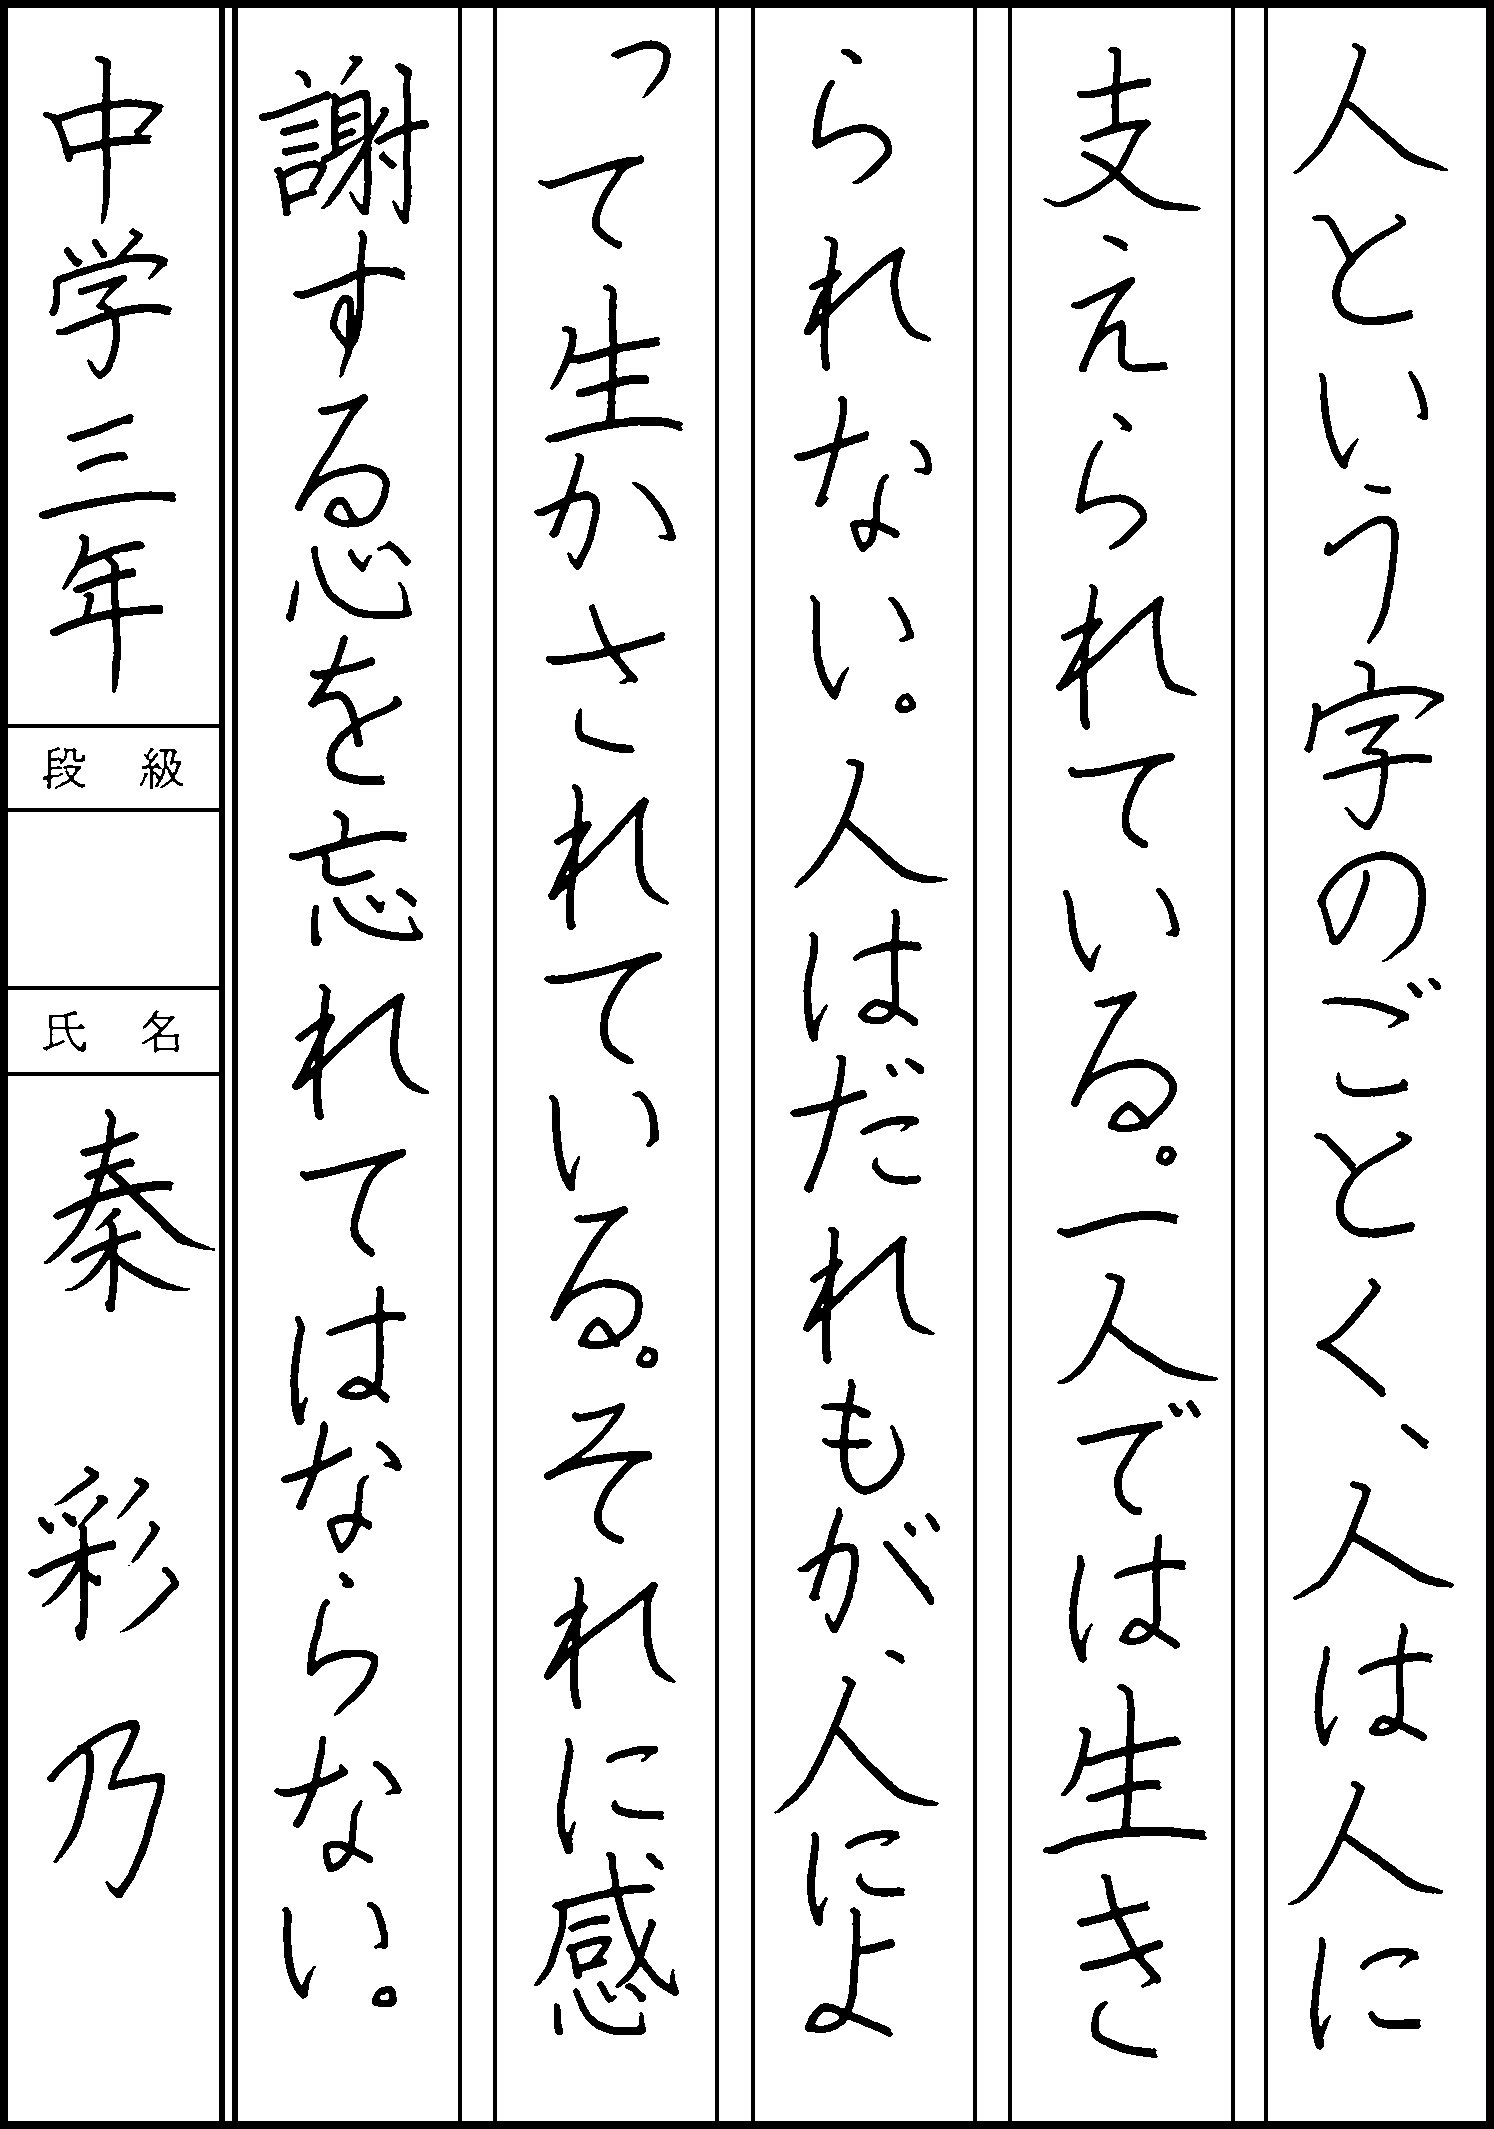 人という字のごとく、人は人に
支えられている。一人では生き
られない。人はだれもが、人によ
って生かされている。それに感
謝する心を忘れてはならない。
中学三年
段級
氏名
秦 彩乃